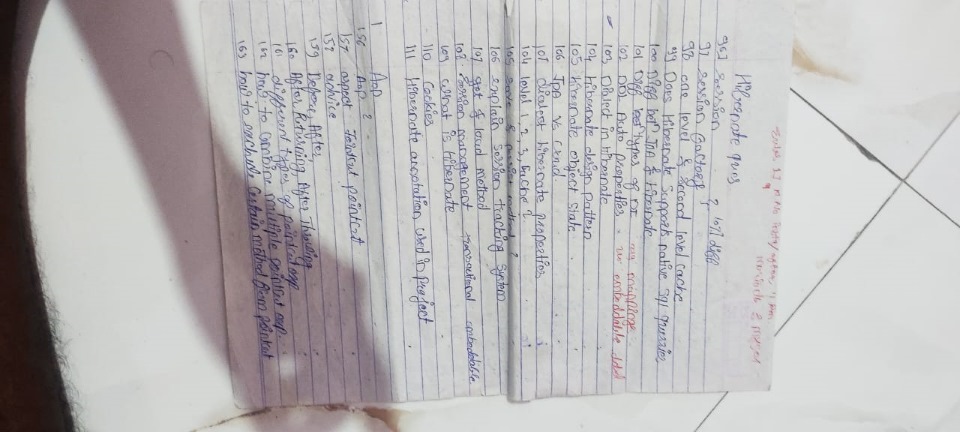 Hibernate ques
96] Session } 107] diff
97 Session Factory
98 one level & second level cache
99 Does Hibernate Supports native SQl querries
100 Diff betn JPA & Hibernate
101 Diff betn types of mappings
102 DDL Auto properties - embeddable
103 Dialect in hibernate
104 Hibernate design pattern
105 hibernate object State
106 JPA Vs
107 dialect hibernate properties
104 level 1, 2, 3, Cache ?
105 Save & persist method ?
106 explain Session tracking System
107 get & load method
108 Session management transactional embeddable
109 what is hibernate
110 Cookies
111 Hibernate annotation used in project
1 Aop
156 Aop ?
157 aspect JoinCut pointCut
157 advice
159 Before, After
160 After Returning, After Throwing
161 different types of pointcut exp
162 how to Combine multiple pointCut exp.
163 how to exclude Certain method from pointcut